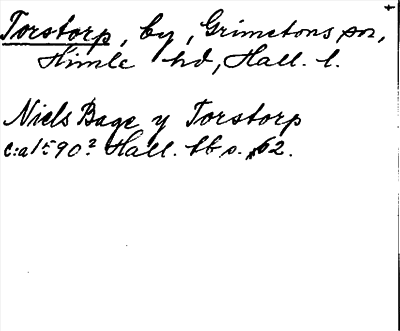 Torstorp, by, Grimetons sn,
Himle hd, Hall. l.
Niels Bage y Torstorp
c:a 1590? Hall. tb s. 62.